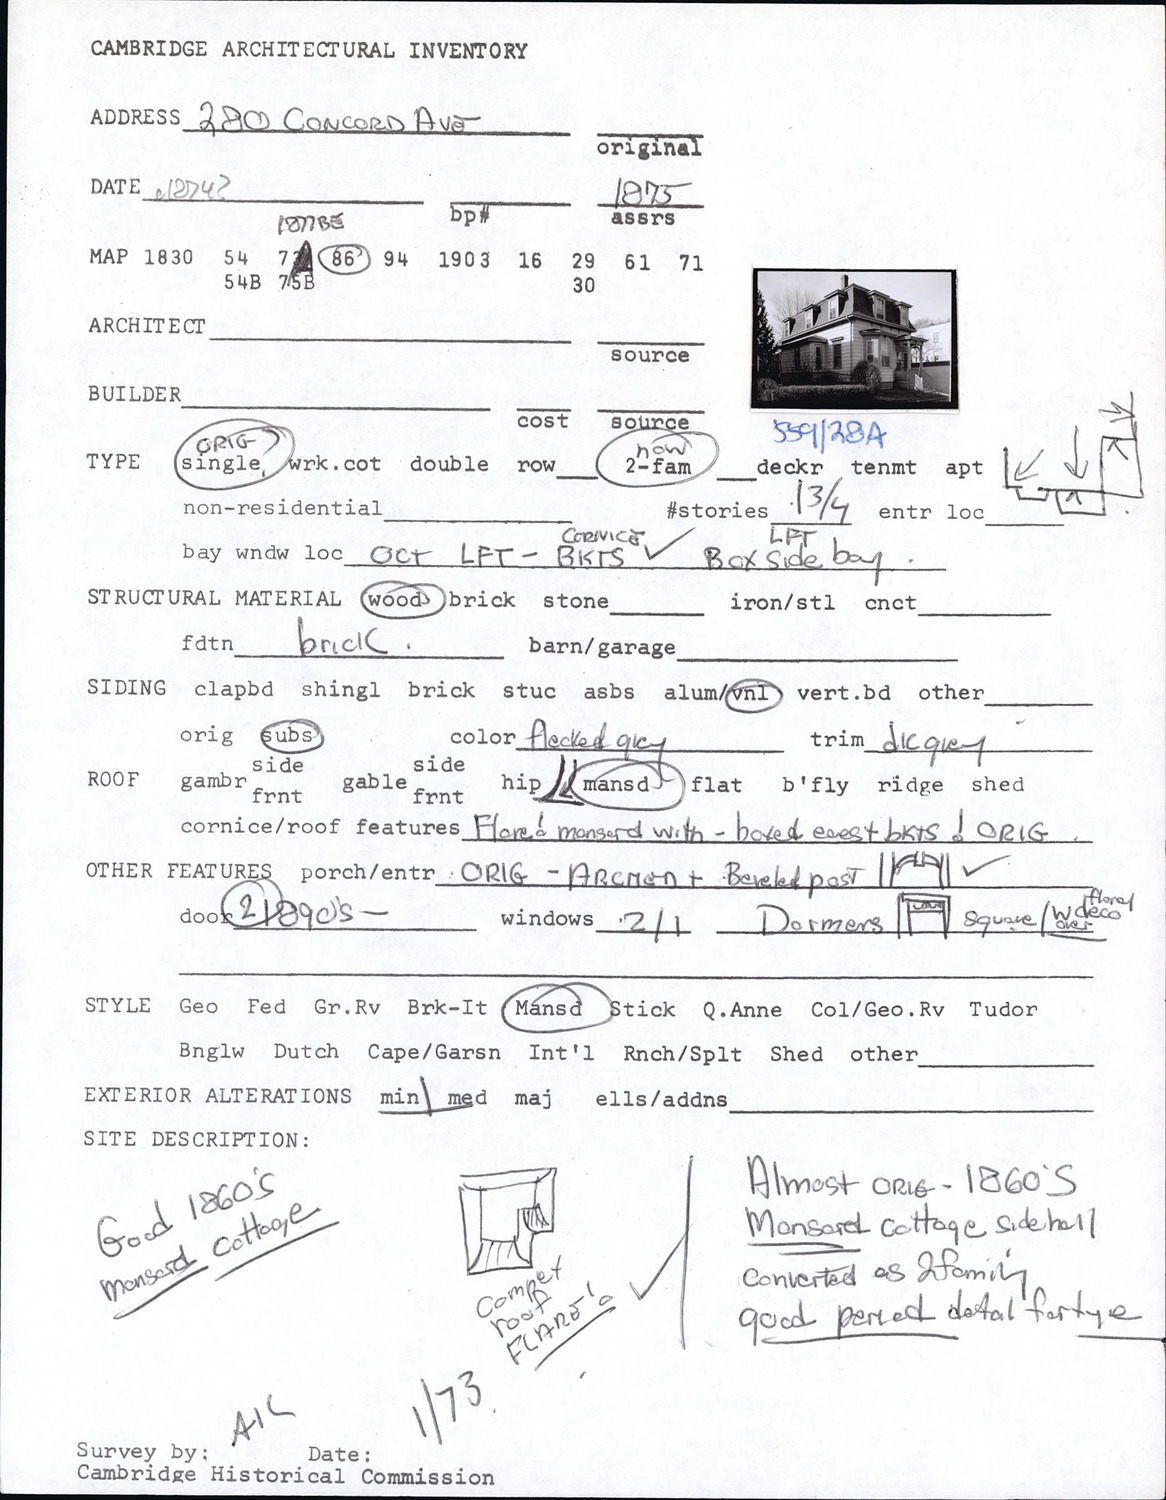 CAMBRIDGE ARCHITECTURAL INVENTORY
ADDRESS 280 CONCORD AVE
original
DATE c1874? 1875
bp# assrs
1877BE
MAP 1830 54 73 86 94 1903 16 29 61 71
54B 75B 30
ARCHITECT
source
BUILDER
cost source
559/28A
ORIG now
TYPE single wrk.cot double row 2-fam deckr tenmt apt
non-residential #stories 1 3/4 entr loc
CORNICE LFT
bay wndw loc OCT LFT - BKTS ✓ Box side bay.
STRUCTURAL MATERIAL wood brick stone iron/stl cnct
fdtn brick. barn/garage
SIDING clapbd shingl brick stuc asbs alum/vnl vert.bd other
orig subs color flecked grey trim dk grey
side side
ROOF gambr gable hip mansd flat b'fly ridge shed
frnt frnt
cornice/roof features Flared mansard with - boxed eaves + bkts ! ORIG.
OTHER FEATURES porch/entr ORIG - Beveled post ✓
door 2 1890's - windows 2/1 Dormers square/w floral deco over
STYLE Geo Fed Gr.Rv Brk-It Mansd Stick Q.Anne Col/Geo.Rv Tudor
Bnglw Dutch Cape/Garsn Int'l Rnch/Splt Shed other
EXTERIOR ALTERATIONS min med maj ells/addns
SITE DESCRIPTION:
Good 1860's
mansard cottage
roof
FLARE!
Almost ORIG - 1860's
Mansard cottage sidehall
converted as 2family
good period detail for type
AK
1/73
Survey by: Date:
Cambridge Historical Commission